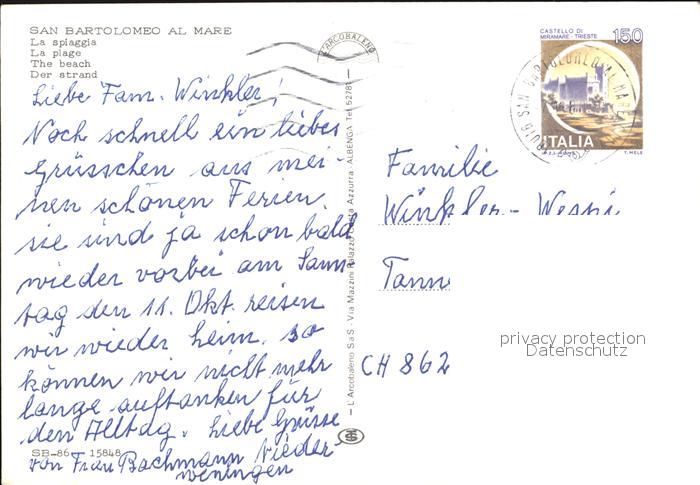 SAN BARTOLOMEO AL MARE
La spiaggia
La plage
The beach
Der strand
Liebe Fam. Winkler!
Noch schnell ein liebes
Grüsschen aus mei-
nen schönen Ferien.
sie sind ja schon bald
wieder vorbei am Sams-
tag den 11. Okt. reisen
wir wieder heim. so
können wir nicht mehr
lange auftanken für
den Alltag. Liebe Grüsse
von Frau Bachmann Nieder-
weningen
SB-86 15848
L'Arcobaleno S.a.S - Via Mazzini Palazzo Azzurra - ALBENGA Tel. 52781
L'ARCOBALENO
CASTELLO DI
MIRAMARE - TRIESTE
150
ITALIA
T. MELE
SAN BARTOLOMEO
Familie
Winkler-
Tann
CH 862
privacy protection
Datenschutz